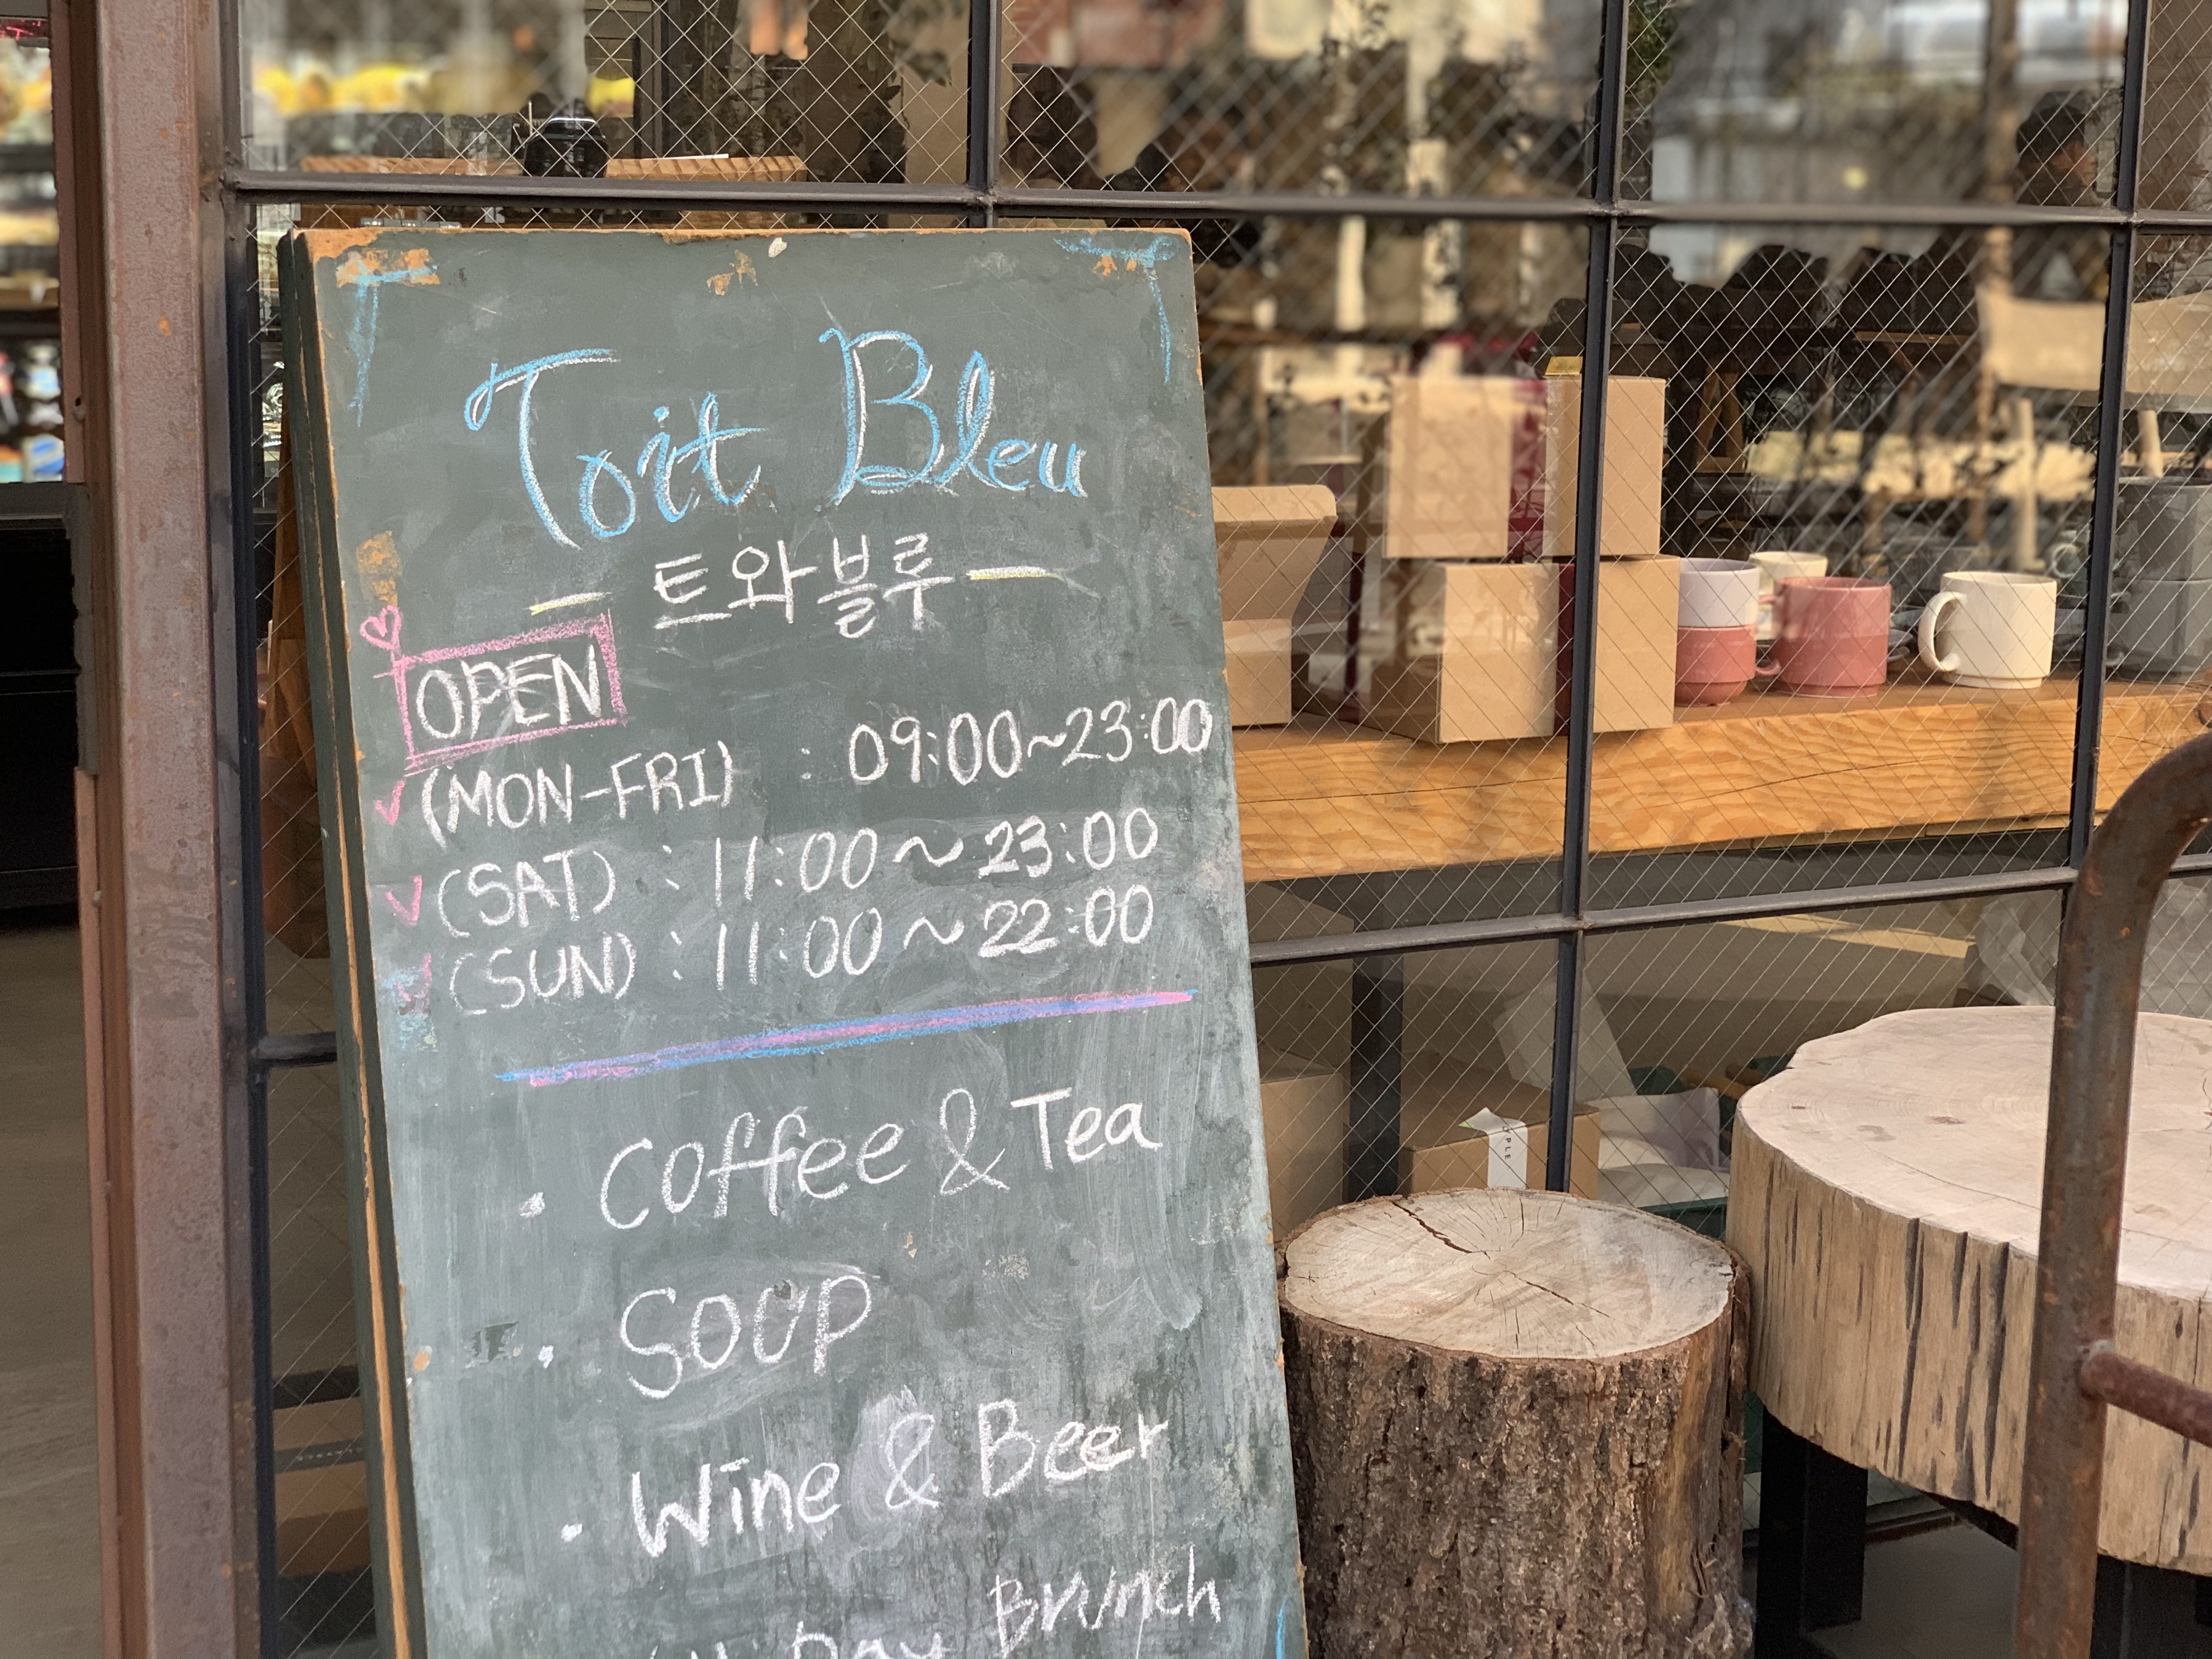 Toit Bleu
- 트와블루 -
OPEN
(MON-FRI) : 09:00~23:00
(SAT) : 11:00 ~ 23:00
(SUN) : 11:00 ~ 22:00
· Coffee & Tea
· SOUP
· Wine & Beer
All Day Brunch